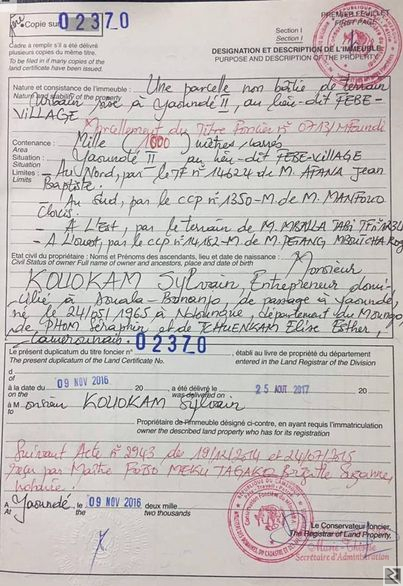 1ère Copie sur 02370
PREMIER FEUILLET
FIRST PAGE
Cadre à remplir s'il a été délivré
plusieurs copies du même titre.
To be filed in if many copies of the
land certificate have been issued.
Section I
Section I
DESIGNATION ET DESCRIPTION DE L'IMMEUBLE
PURPOSE AND DESCRIPTION OF THE PROPERTY
Nature et consistance de l'immeuble : Une parcelle non bâtie de terrain
Nature and stability of the property
Urbain sise à Yaoundé II, au lieu-dit FEBE-
VILLAGE
Morcellement du Titre Foncier n° 0713/Mfoundi
Contenance : Mille (1000) mètres carrés
Area
Situation : Yaoundé II au lieu-dit FEBE-VILLAGE
Situation
Limites : Au Nord, par le TF n° 14624 de M. ATANA Jean
Limits
Baptiste.
Au Sud, par le CCP n° 1350-M. de M. MANFOUO
Clovis.
- A L'Est, par le terrain de M. MBALLA TABI
- A L'Ouest, par le CCP n° 14162-M de M.
Etat civil du propriétaire : Noms et Prénoms des ascendants, lieu et date de naissance :
Civil Status of owner Full name of owner and ancestors, place and date of birth
Monsieur
KOUOKAM Sylvain, Entrepreneur domi-
cilié à Douala-Bonanjo, de passage à Yaoundé,
né le 24/05/1965 à département du Moungo,
de PHOM Séraphin et de TCHUENKAM Elise Esther,
Camerounais.
Le présent duplicatum du titre foncier n° 02370, établi au livre de propriété du département
The present duplicatum of the Land Certificate No. entered in the Land Registrar of the Division
d
of
à la date du 09 NOV 2016 20 a été délivré le 25 AOUT 2017 20
at the was delivered on
à Monsieur KOUOKAM Sylvain
to M
Propriétaire de l'immeuble désigné ci-contre, en ayant requis l'immatriculation
owner the described land property who has for its registration
Suivant Acte n° 2943 du 19/12/2014 et 24/07/2015
reçu par Maître FOTSO Brigitte Suzanne,
notaire.
A Yaoundé, le 09 NOV 2016 deux mille
At the two thousands
Le Conservateur foncier,
The Registrar of Land Property,
Secrétaire d'Administration